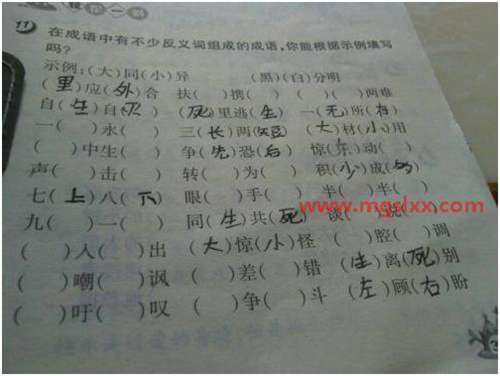 11 在成语中有不少反义词组成的成语,你能根据示例填写
吗?
示例:(大)同(小)异 (黑)(白)分明
(里)应(外)合 扶( )携( ) ( )( )两难
自(生)自(灭) (死)里逃(生) 一(无)所(有)
一( )永( ) 三(长)两(短) (大)材(小)用
( )中生( ) 争(先)恐(后) 惊( )动( )
声( )击( ) 转( )为( ) 积(小)成( )
七(上)八(下) 眼( )手( ) 半( )半( )
www.mgslxx.com
九( )一( ) 同(生)共(死) 谈( )虎( )
( )入( )出 (大)惊(小)怪 ( )腔( )调
( )嘲( )讽 ( )差( )错 (生)离(死)别
( )吁( )叹 ( )争( )斗 (左)顾(右)盼